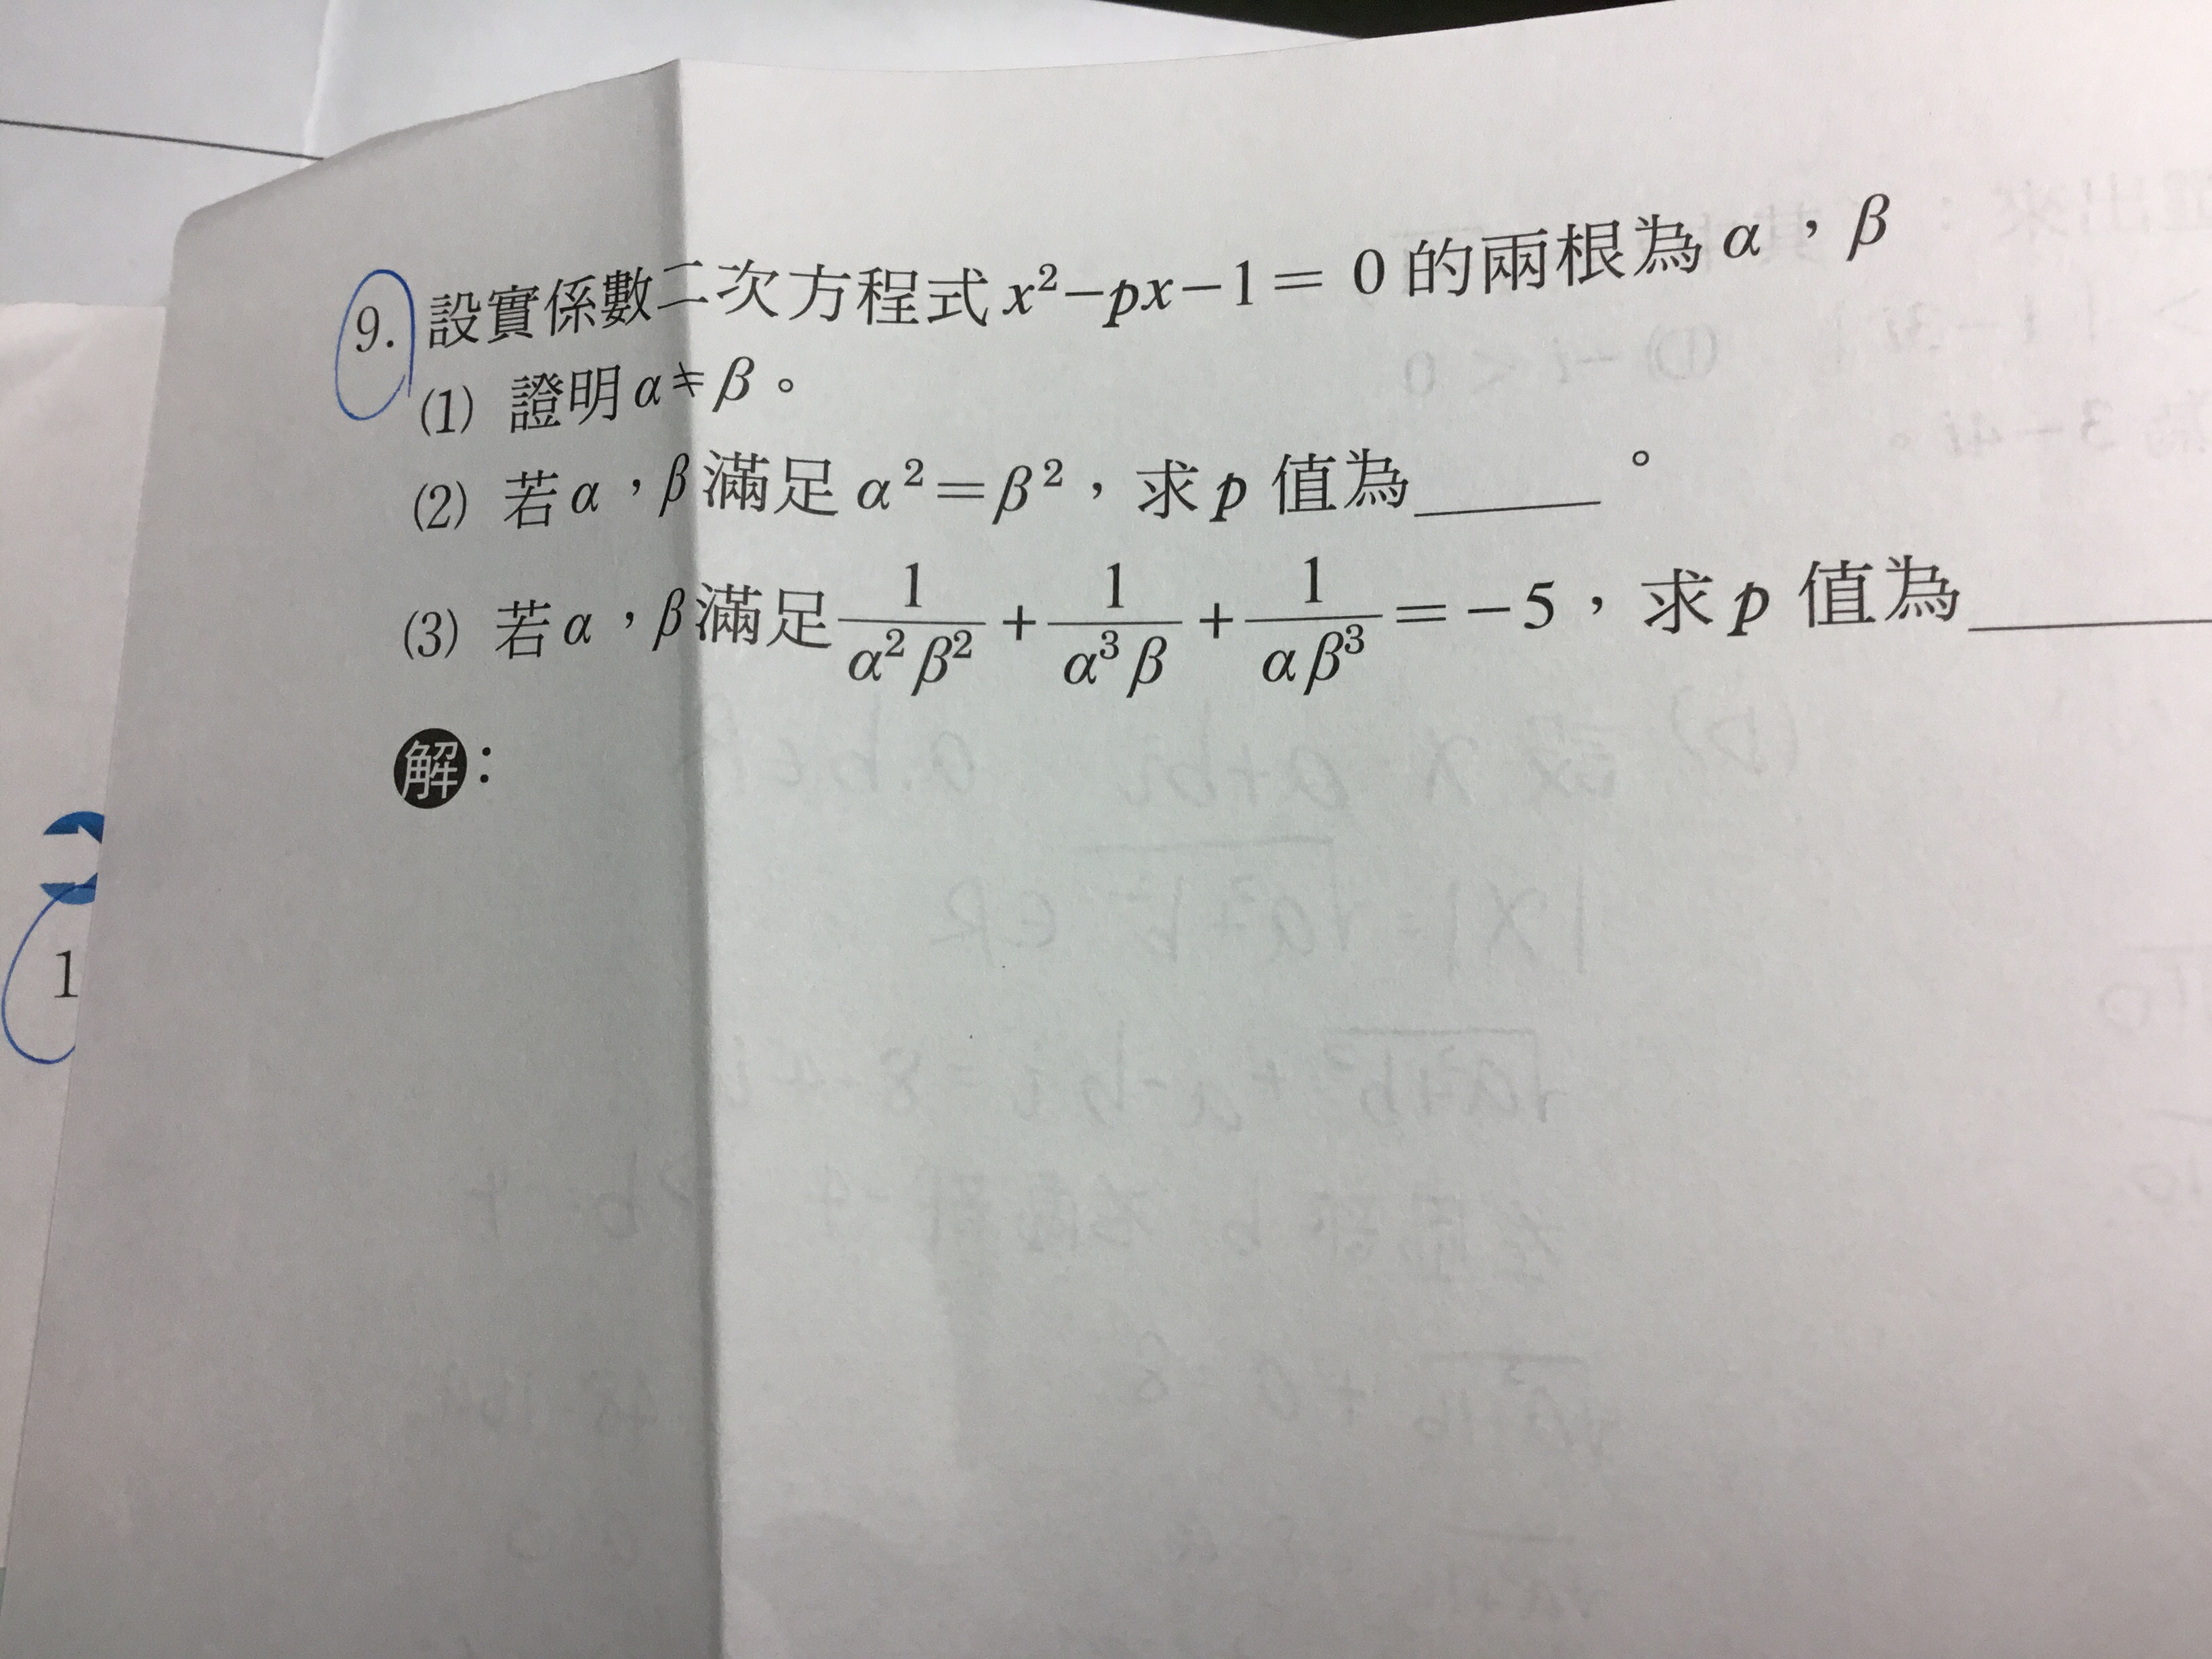 9. 設實係數二次方程式 x²−px−1= 0 的兩根為 α，β
(1) 證明 α≠β。
(2) 若 α，β 滿足 α²=β²，求 p 值為_____。
(3) 若 α，β 滿足 1/(α²β²) + 1/(α³β) + 1/(αβ³) = −5，求 p 值為_____
解：
1